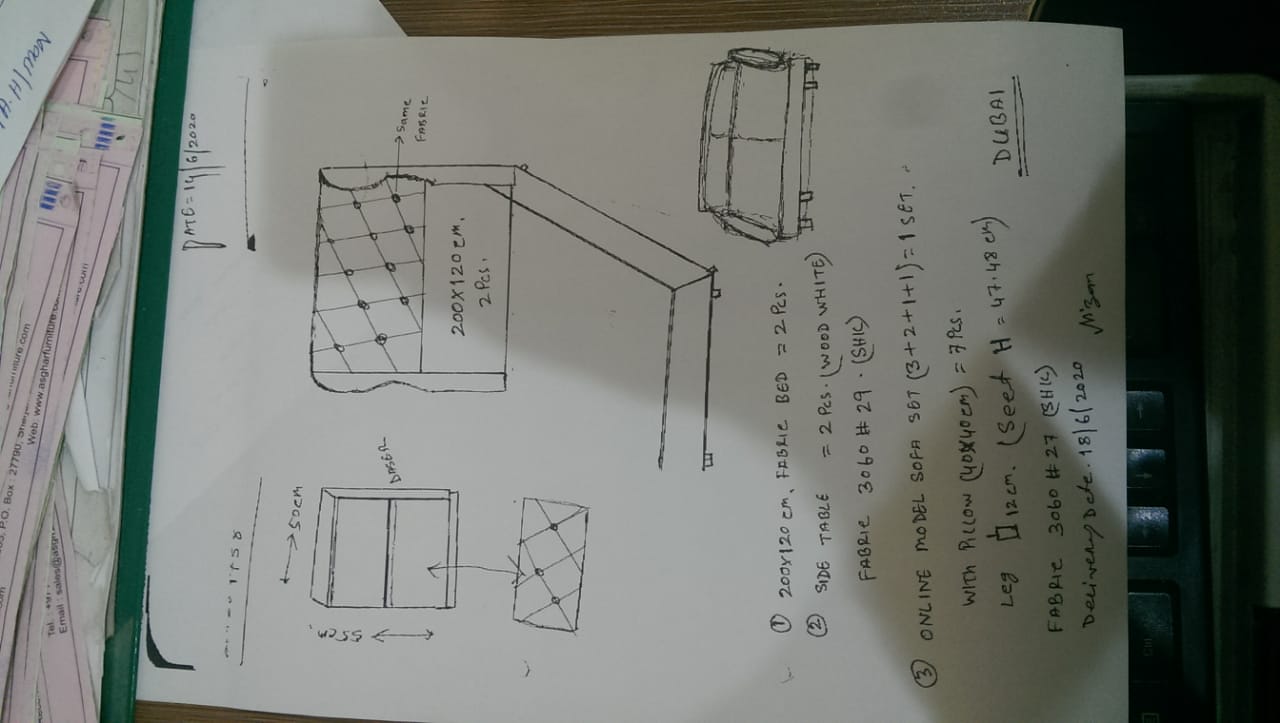 P.O. Box : 27790, Sharj
rniture.com
Web: www.asgharfurniture.co
Tel. :
Email : sales@asgh
DATE = 14/6/2020
1758
50cm
55cm.
Same
FABRIC
200X120 cm.
2 Pcs.
① 200X120 cm. FABRIC BED = 2 Pcs.
② SIDE TABLE = 2 Pcs. (WOOD WHITE)
FABRIC 3060 # 29 . (SHK)
③ ONLINE MODEL SOFA SET (3+2+1+1) = 1 SET.
WITH PILLOW (40X40cm) = 7 Pcs.
Leg 12 cm. (Seet H = 47.48 cm)
DUBAI
FABRIC 3060 # 27 (SHK)
Delivery Date . 18/6/2020 Mizan